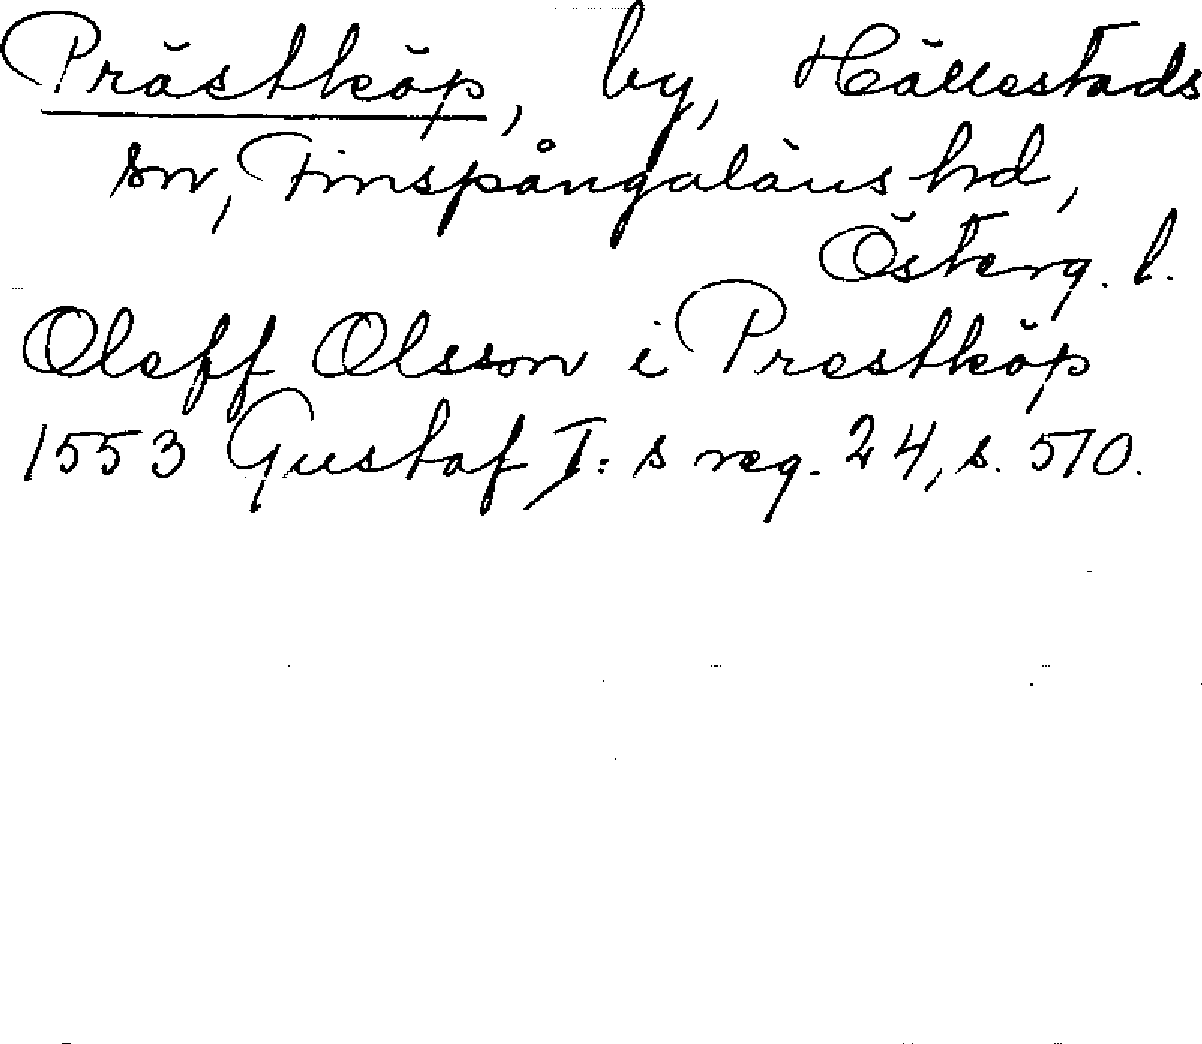 Prästköp, by, Hällestads
sn, Finspångaläns hd,
Österg. l.
Oleff Olsson i Prestköp
1553 Gustaf I:s reg. 24, s. 510.